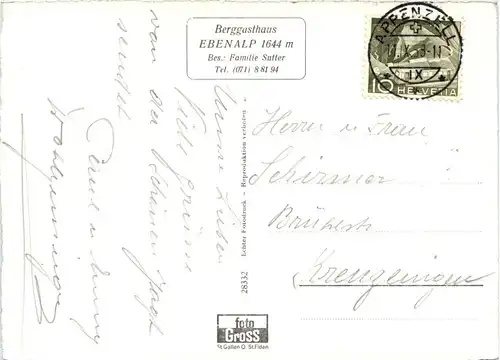 Berggasthaus
EBENALP 1644 m
Bes.: Familie Sutter
Tel. (071) 8 81 94
APPENZELL
IX
10
HELVETIA
Meine Lieben
Viele Grüsse
von der schönen
sendet
Herrn u Frau
Schirmer
Kreuzlingen
28332 Echter Fotodruck - Reproduktion verboten -
foto
GROSS
St Gallen O. St. Fiden